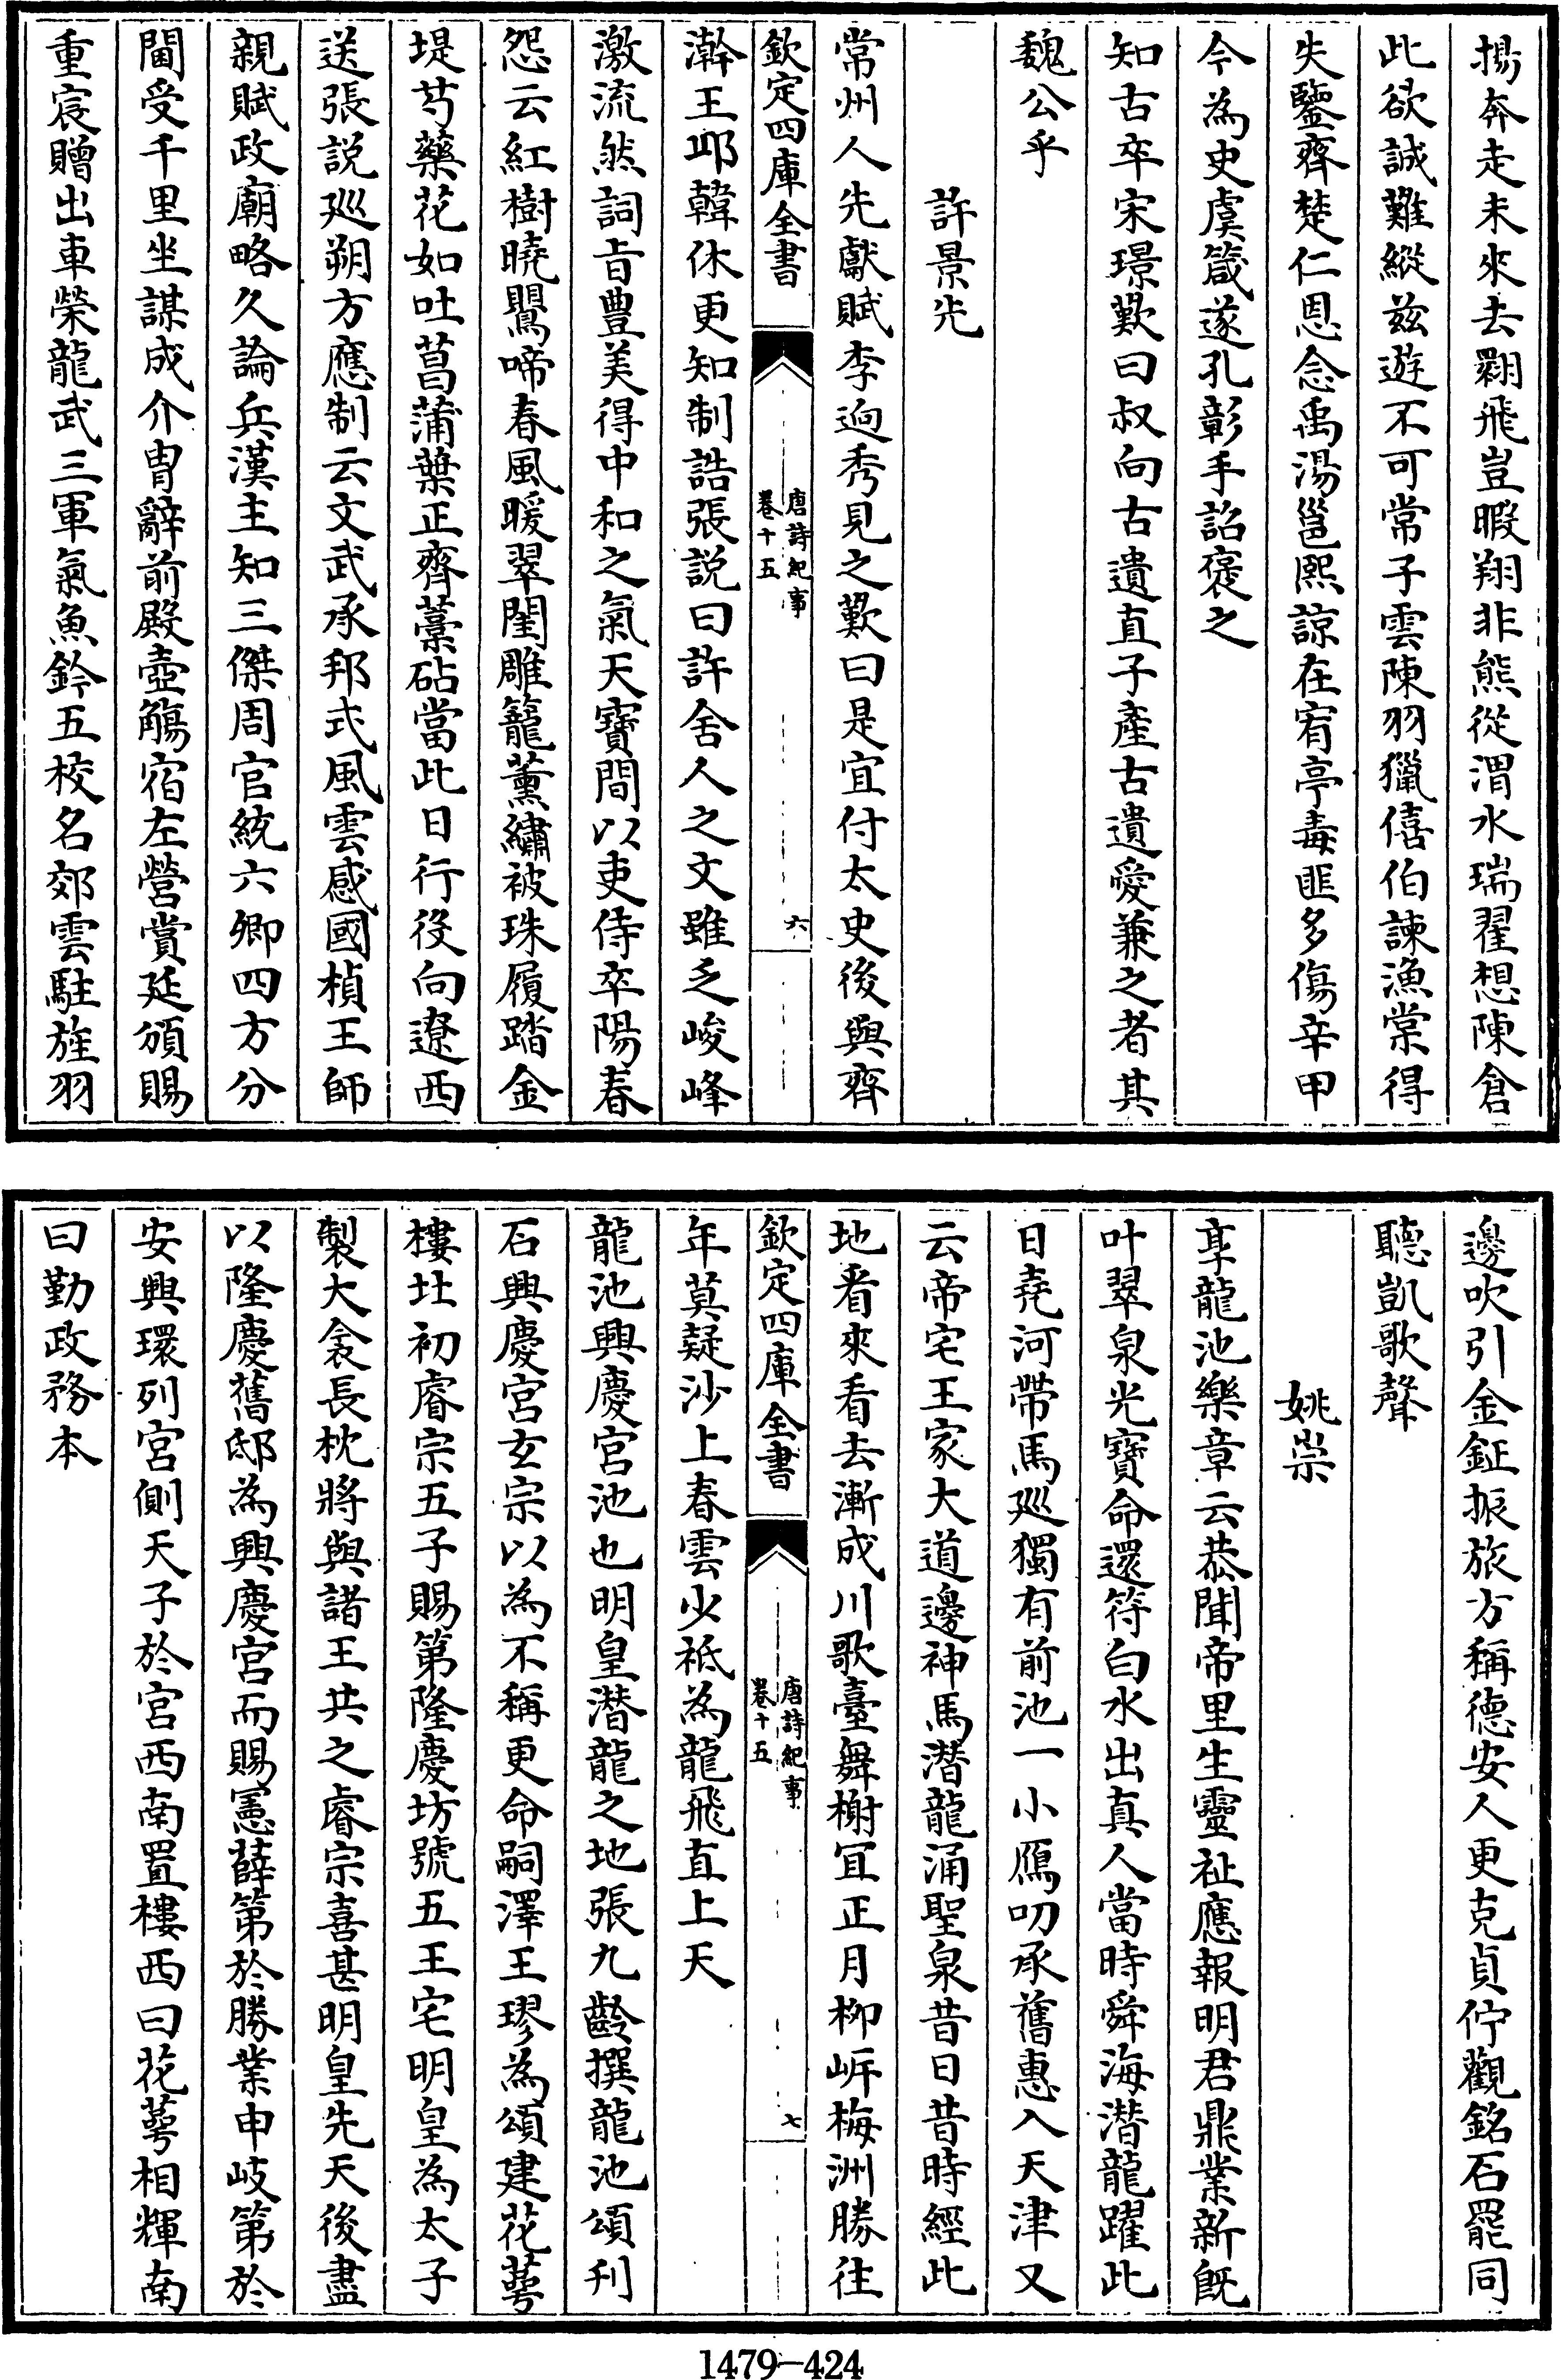 搊奔走未來去翾飛豈暇翔非熊從渭水瑞翟想陳倉
此欲誠難縱兹遊不可常子雲陳羽獵僖伯諫漁棠得
失鑒齊楚仁恩念禹湯邕熙諒在宥亭毒匪多傷辛甲
今為史虞箴遂孔彰手詔褒之
知古卒宋璟歎曰叔向古遺直子產古遺愛兼之者其
魏公乎
許景先
常州人先獻賦李逈秀見之歎曰是宜付太史後與齊
欽定四庫全書
唐詩紀事
卷十五
六
澣王邱韓休更知制誥張説曰許舍人之文雖乏峻峰
激流然詞旨豐美得中和之氣天寶間以吏侍卒陽春
怨云紅樹曉鸎啼春風暖翠閨雕籠薰繡被珠履踏金
堤芍藥花如吐菖蒲葉正齊藁砧當此日行役向遼西
送張説廵朔方應制云文武承邦式風雲感國楨王師
親賦政廟略久論兵漢主知三傑周官統六卿四方分
閫受千里坐謀成介胄辭前殿壺觴宿左營賞延頒賜
重宸贈出車榮龍武三軍氣魚鈐五校名郊雲駐旌羽
邊吹引金鉦振旅方稱德安人更克貞佇觀銘石罷同
聽凱歌聲
姚崇
享龍池樂章云恭聞帝里生靈祉應報明君鼎業新旣
叶翠泉光寶命還符白水出真人當時舜海潛龍躍此
日堯河帶馬廵獨有前池一小鴈叨承舊惠入天津又
云帝宅王家大道邊神馬潛龍涌聖泉昔日昔時經此
地看來看去漸成川歌臺舞榭宜正月柳岍梅洲勝往
欽定四庫全書
唐詩紀事
卷十五
七
年莫疑沙上春雲少祗為龍飛直上天
龍池興慶宮池也明皇潛龍之地張九齡撰龍池頌刋
石興慶宮玄宗以為不稱更命嗣澤王璆為頌建花萼
樓北初睿宗五子賜第隆慶坊號五王宅明皇為太子
製大衾長枕將與諸王共之睿宗喜甚明皇先天後盡
以隆慶舊邸為興慶宮而賜憲薛第於勝業申岐第於
安興環列宮側天子於宮西南置樓西曰花萼相輝南
曰勤政務本
1479—424